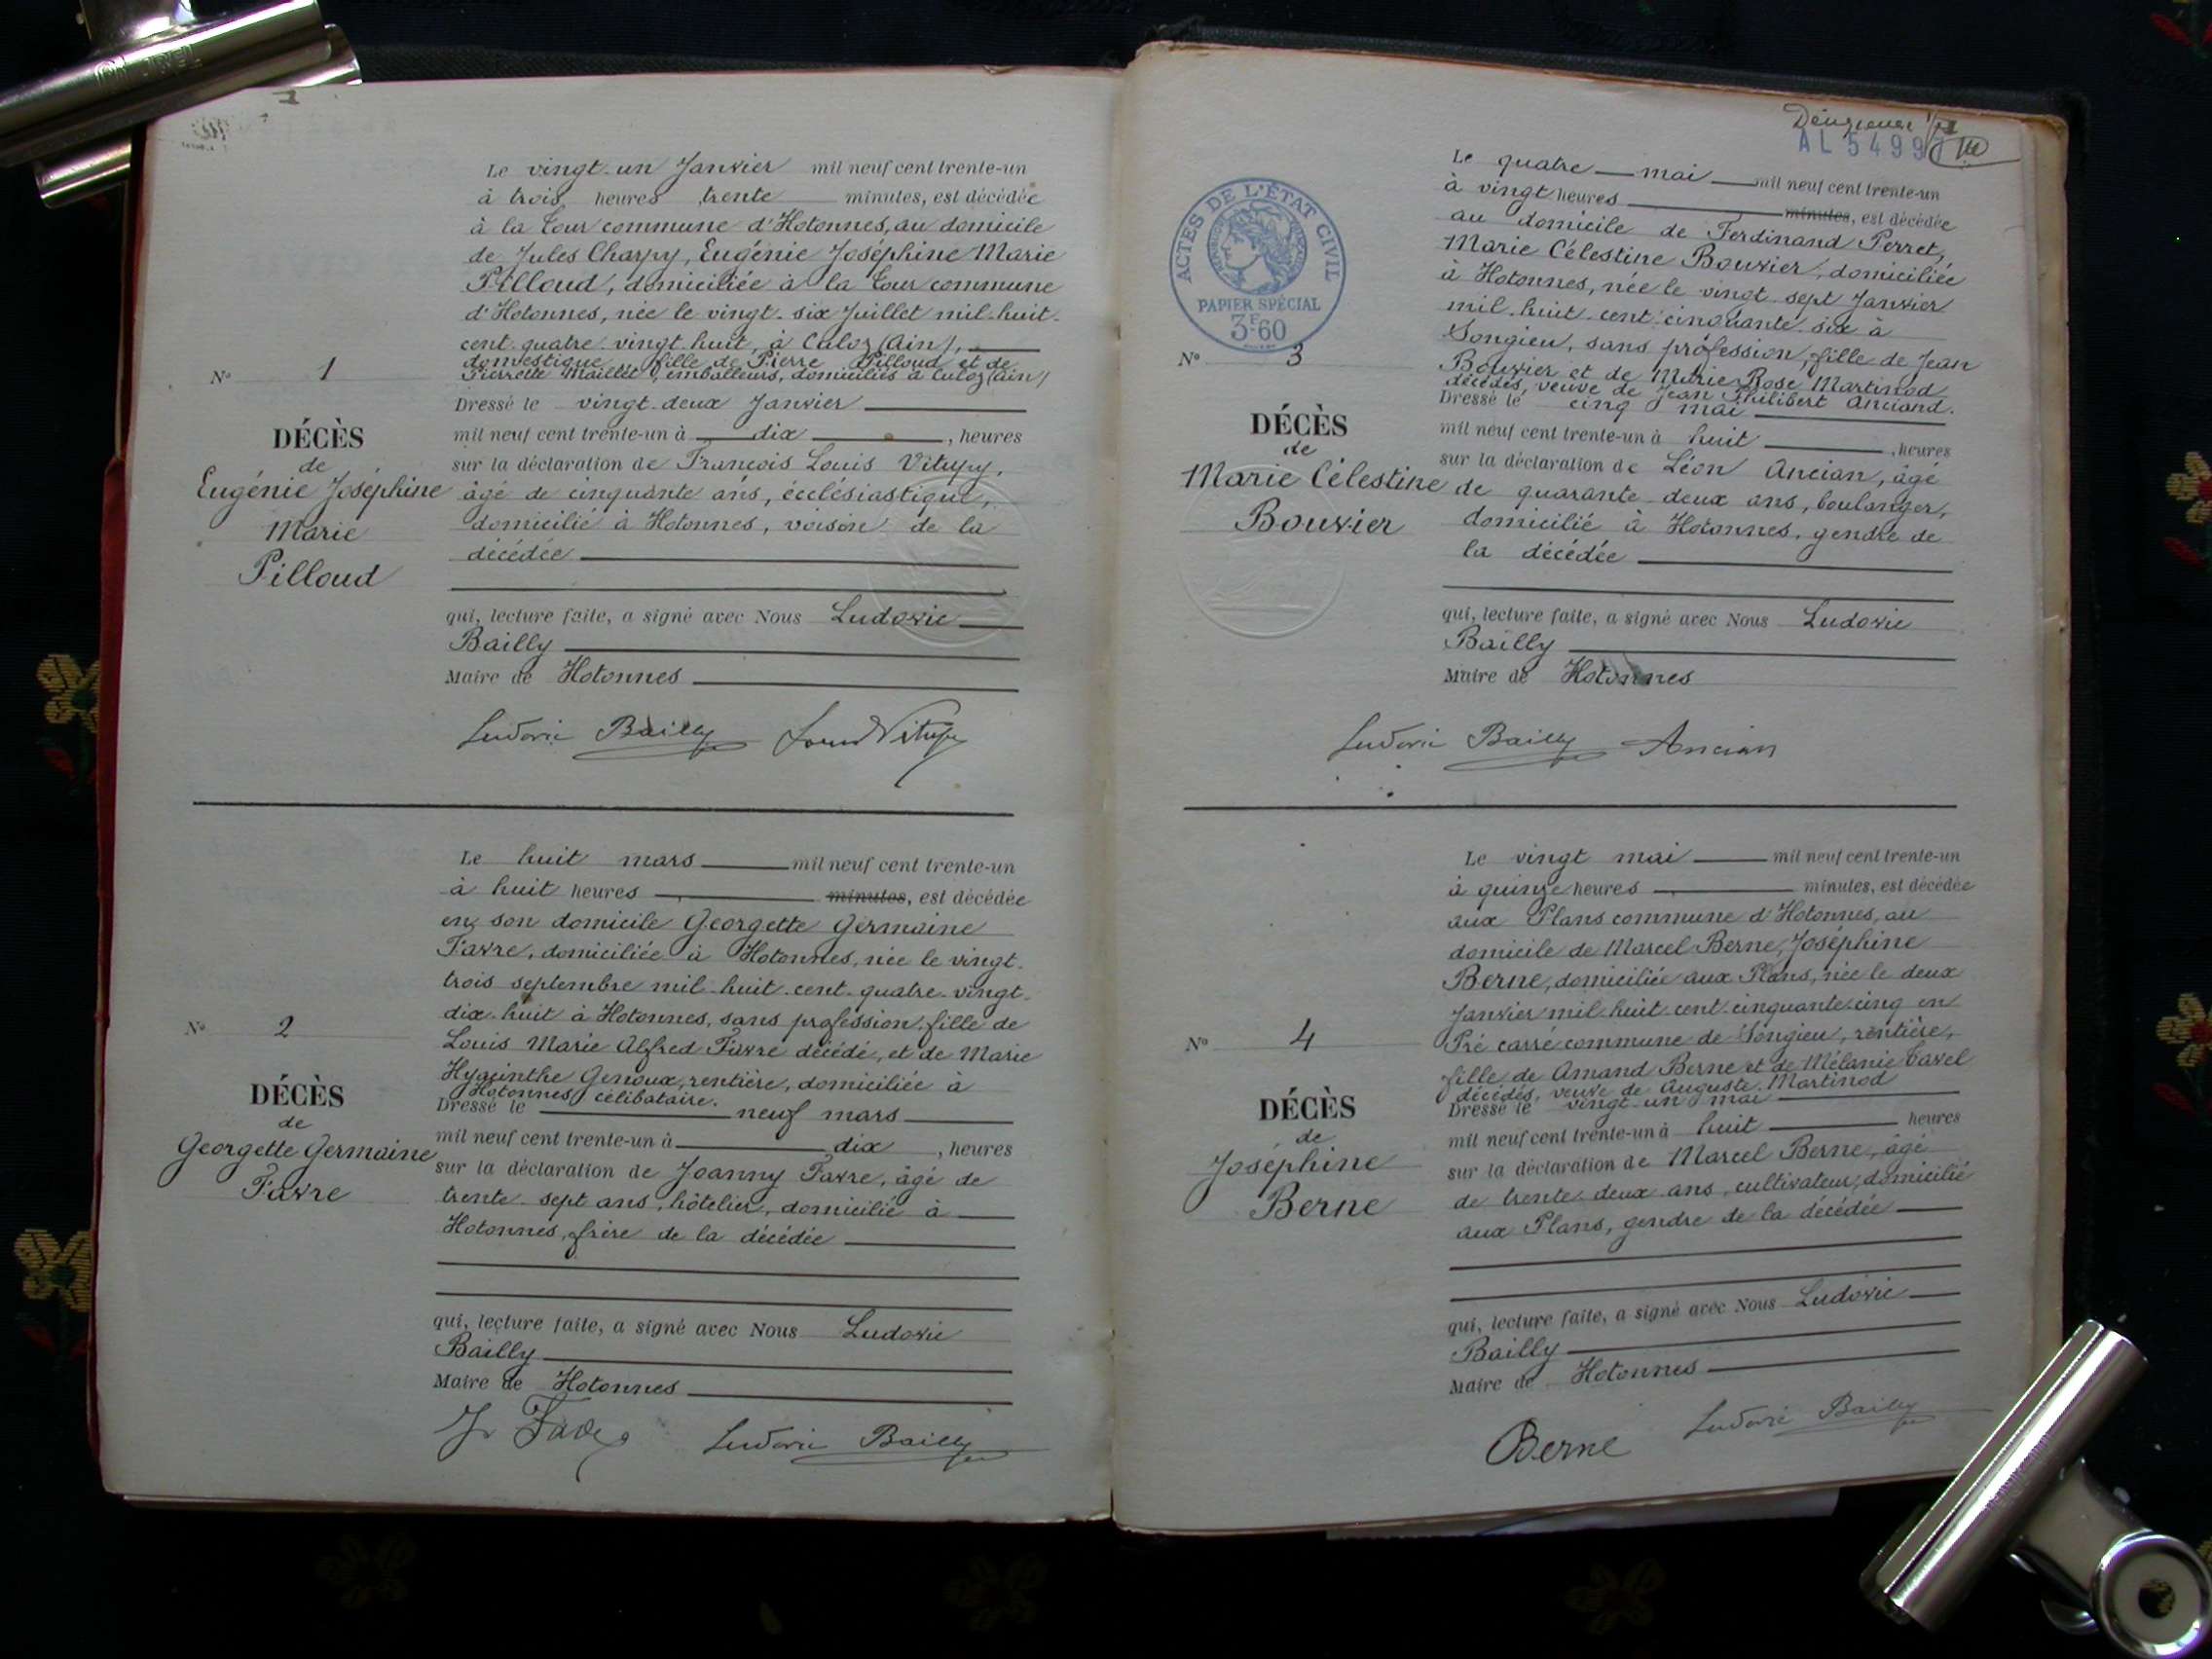 Le vingt-un Janvier mil neuf cent trente-un
à trois heures trente minutes, est décédée
à la Cour commune d'Hotonnes, au domicile
de Jules Charpy, Eugénie Joséphine Marie
Pilloud, domiciliée à la Cour commune
d'Hotonnes, née le vingt-six Juillet mil-huit-
cent-quatre-vingt-huit, à Culoz (Ain),
domestique, fille de Pierre Pilloud et de
Pierrette Maillet, emballeurs, domiciliés à Culoz (Ain)
N° 1
Dressé le vingt-deux Janvier
mil neuf cent trente-un à dix, heures
sur la déclaration de François Louis Vitupy,
âgé de cinquante ans, écclésiastique,
domicilié à Hotonnes, voison de la
décédée
DÉCÈS
de
Eugénie Joséphine
Marie
Pilloud
qui, lecture faite, a signé avec Nous Ludovic
Bailly
Maire de Hotonnes
Ludovic Bailly
Le huit mars mil neuf cent trente-un
à huit heures minutes, est décédée
en son domicile Georgette Germaine
Favre, domiciliée à Hotonnes, née le vingt-
trois septembre mil-huit-cent-quatre-vingt-
dix-huit à Hotonnes, sans profession, fille de
Louis Marie Alfred Favre décédé, et de Marie
Hyacinthe Genoux, rentière, domiciliée à
Hotonnes, célibataire.
N° 2
Dressé le neuf mars
mil neuf cent trente-un à dix, heures
sur la déclaration de Joanny Favre, âgé de
trente-sept ans, hôtelier, domicilié à
Hotonnes, frère de la décédée
DÉCÈS
de
Georgette Germaine
Favre
qui, lecture faite, a signé avec Nous Ludovic
Bailly
Maire de Hotonnes
J. Favre Ludovic Bailly
AL 5499
ACTES DE L'ÉTAT CIVIL
PAPIER SPÉCIAL
3F60
Le quatre mai mil neuf cent trente-un
à vingt heures minutes, est décédée
au domicile de Ferdinand Perret,
Marie Célestine Bouvier, domiciliée
à Hotonnes, née le vingt-sept Janvier
mil-huit-cent-cinquante-six à
Songieu, sans profession, fille de Jean
Bouvier et de Marie Rose Martinod
décédés, veuve de Jean Philibert Anciand.
N° 3
Dressé le cinq mai
mil neuf cent trente-un à huit, heures
sur la déclaration de Léon Ancian, âgé
de quarante-deux ans, boulanger,
domicilié à Hotonnes, gendre de
la décédée
DÉCÈS
de
Marie Célestine
Bouvier
qui, lecture faite, a signé avec Nous Ludovic
Bailly
Maire de Hotonnes
Ludovic Bailly Ancian
Le vingt mai mil neuf cent trente-un
à quinze heures minutes, est décédée
aux Plans commune d'Hotonnes, au
domicile de Marcel Berne, Joséphine
Berne, domiciliée aux Plans, née le deux
Janvier mil-huit-cent-cinquante-cinq en
Pré carré commune de Songieu, rentière,
fille de Amand Berne et de Mélanie Tavel
décédés, veuve de Auguste Martinod
N° 4
Dressé le vingt-un mai
mil neuf cent trente-un à huit heures
sur la déclaration de Marcel Berne, âgé
de trente-deux ans, cultivateur, domicilié
aux Plans, gendre de la décédée
DÉCÈS
de
Joséphine
Berne
qui, lecture faite, a signé avec Nous Ludovic
Bailly
Maire de Hotonnes
Berne Ludovic Bailly